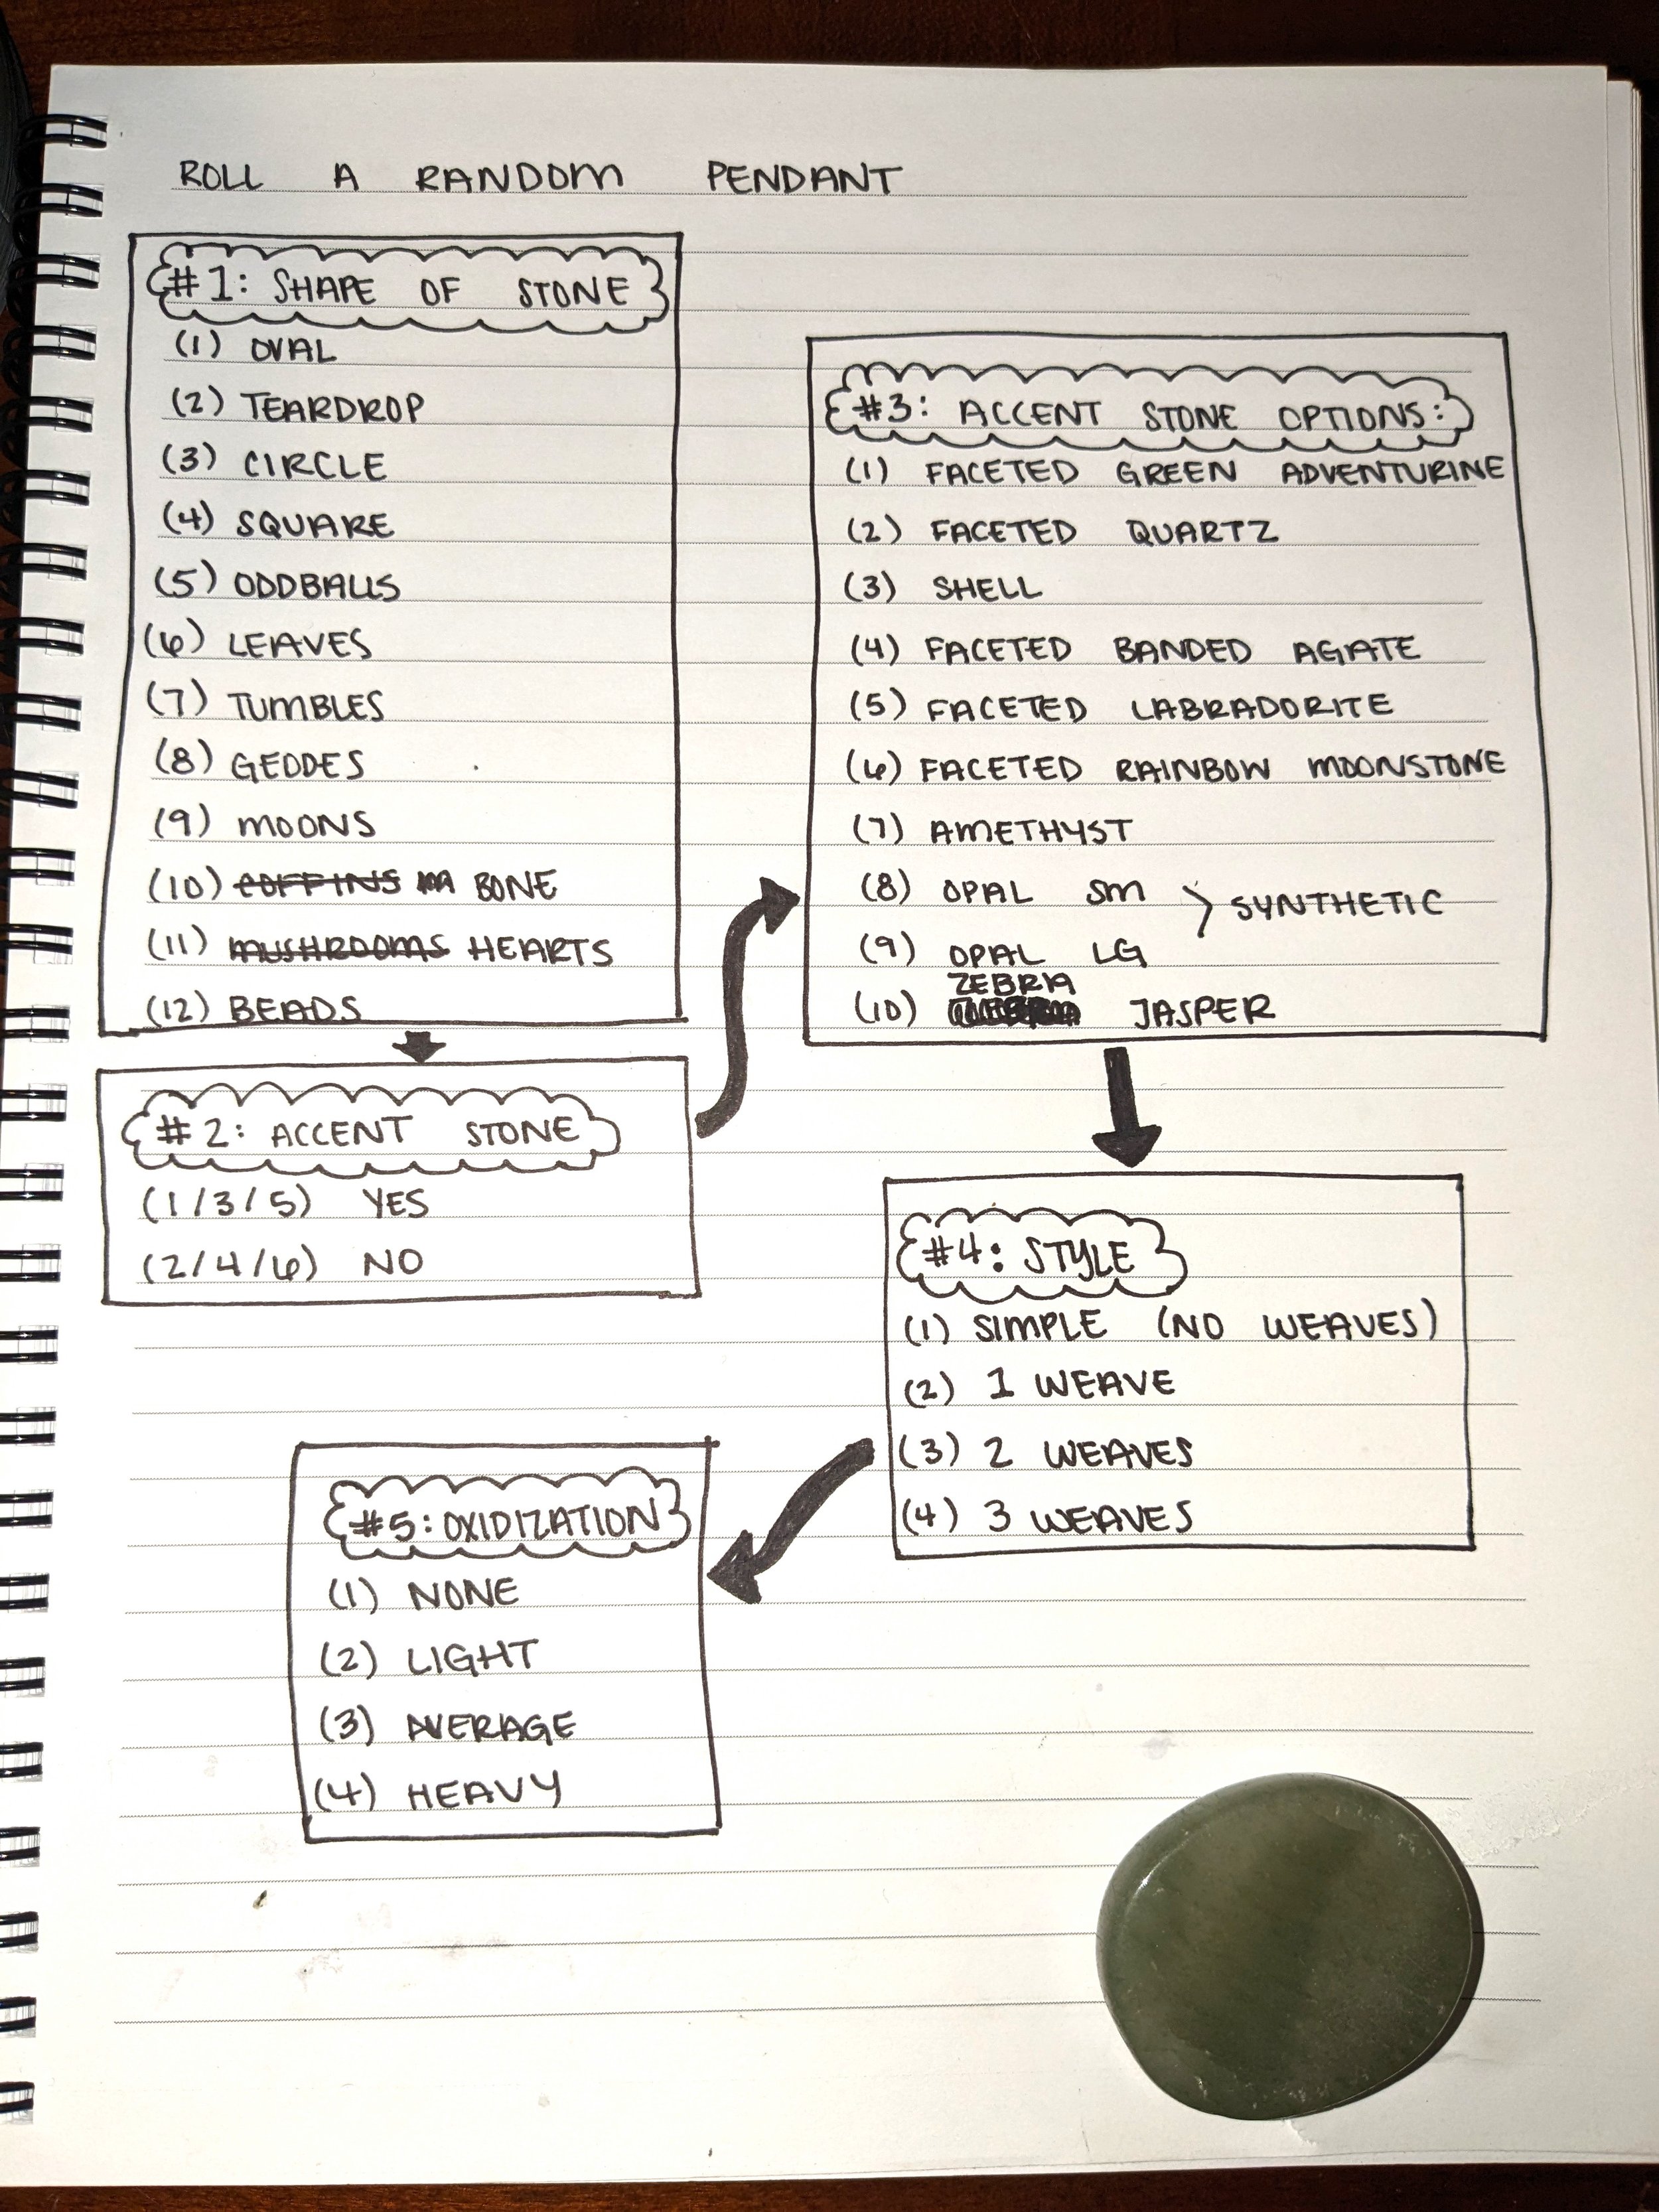 ROLL A RANDOM PENDANT
#1: SHAPE OF STONE
(1) OVAL
(2) TEARDROP
(3) CIRCLE
(4) SQUARE
(5) ODDBALLS
(6) LEAVES
(7) TUMBLES
(8) GEODES
(9) MOONS
(10) COFFINS BONE
(11) MUSHROOMS HEARTS
(12) BEADS
#2: ACCENT STONE
(1/3/5) YES
(2/4/6) NO
#3: ACCENT STONE OPTIONS:
(1) FACETED GREEN ADVENTURINE
(2) FACETED QUARTZ
(3) SHELL
(4) FACETED BANDED AGATE
(5) FACETED LABRADORITE
(6) FACETED RAINBOW MOONSTONE
(7) AMETHYST
(8) OPAL SM
SYNTHETIC
(9) OPAL LG
ZEBRA
(10) JASPER
#4: STYLE
(1) SIMPLE (NO WEAVES)
(2) 1 WEAVE
(3) 2 WEAVES
(4) 3 WEAVES
#5: OXIDIZATION
(1) NONE
(2) LIGHT
(3) AVERAGE
(4) HEAVY